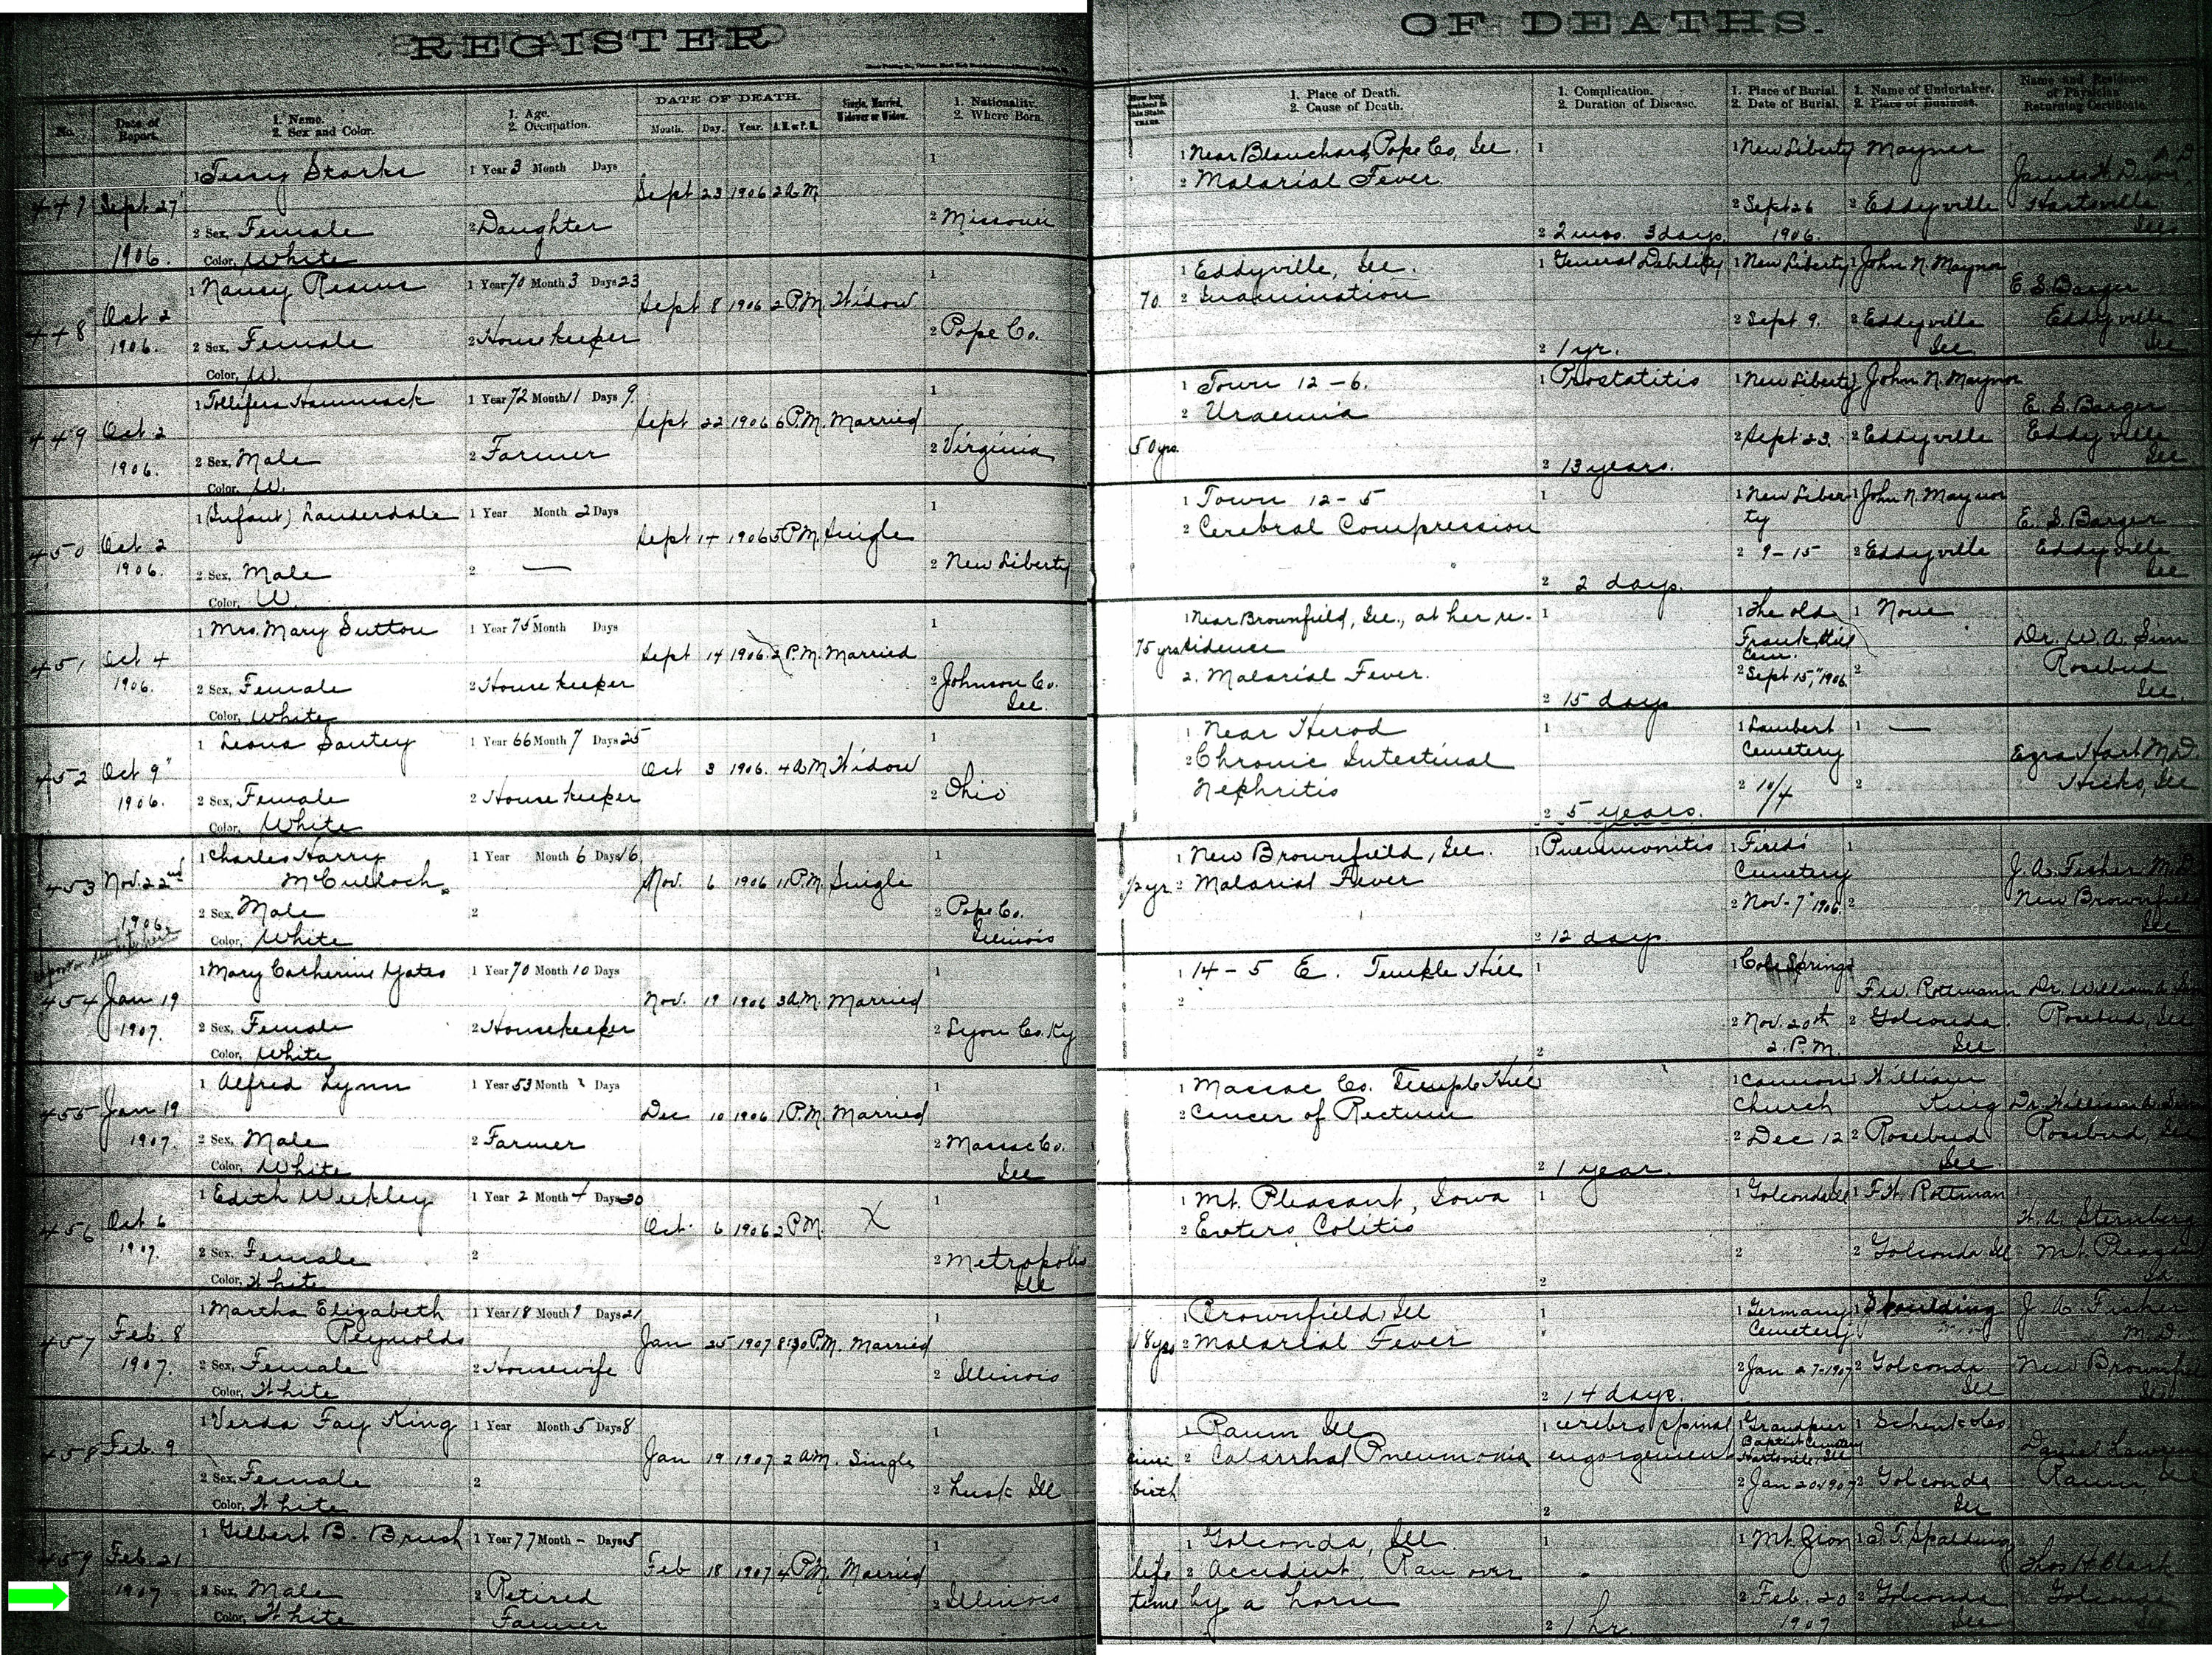 REGISTER OF DEATHS.
No. Date of Report. 1. Name. 2. Sex and Color. 1. Age. 2. Occupation. DATE OF DEATH. Month. Day. Year. A.M. or P.M. Single, Married, Widower or Widow. 1. Nationality. 2. Where Born. 1. Place of Death. 2. Cause of Death. 1. Complication. 2. Duration of Disease. 1. Place of Burial. 2. Date of Burial. 1. Name of Undertaker. 2. Place of Business. Name and Residence of Physician Returning Certificate.
447 Sept 27 1 Starks 1 Year 3 Month Days Sept 23 1906 2 A.M 1 1 Near Blanchard, Pope Co, Ill. 1 1 New Liberty Maynor
2 Malarial Fever. James H.
2 Sex, Female 2 Daughter 2 Missouri 2 Sept 26 2 Eddyville Hartsville
1906. Color, White 2 2 mos. 3 days. 1906. Ills
448 Oct 2 1 Nancy 1 Year 70 Month 3 Days 23 Sept 8 1906 2 P.M. Widow 1 1 Eddyville, Ill. 1 General Debility 1 New Liberty 1 John N. Maynor
70 2 E. S. Barger
1906. 2 Sex, Female 2 Housekeeper 2 Pope Co. 2 Sept 9. 2 Eddyville Eddyville
Color, W. 2 1 yr. Ill Ill
449 Oct 2 1 Hammack 1 Year 72 Month 11 Days 9 Sept 22 1906 6 P.M. Married 1 1 Town 12-6. 1 Prostatitis 1 New Liberty John N. Maynor
2 Uraemia E. S. Barger
1906. 2 Sex, Male 2 Farmer 2 Virginia 50 yrs. 2 Sept 23. 2 Eddyville Eddyville
Color, W. 2 13 years. Ill
450 Oct 2 1 (Infant) Lauderdale 1 Year Month 2 Days Sept 14 1906 5 P.M. Single 1 1 Town 12-5 1 1 New Liberty 1 John N. Maynor
2 Cerebral Compression E. S. Barger
1906. 2 Sex, Male 2 — 2 New Liberty 2 9-15 2 Eddyville Eddyville
Color, W. 2 2 days. Ill
451 Oct 4 1 Mrs. Mary Sutton 1 Year 75 Month Days Sept 14 1906. 2 P.M. Married 1 1 Near Brownfield, Ill., at her re- 1 1 The old 1 None
75 yrs sidence Frank Hill Cem. Dr. W. A. Sim
1906. 2 Sex, Female 2 Housekeeper 2 Johnson Co. Ill. 2. Malarial Fever. 2 Sept 15, 1906 2 Rosebud
Color, White 2 15 days Ill.
452 Oct 9 1 Leona 1 Year 66 Month 7 Days 25 Oct 3 1906. 4 A.M Widow 1 1 Near Herod 1 1 Lambert 1 —
2 Chronic Intestinal Cemetery Ezra Hart M.D.
1906. 2 Sex, Female 2 Housekeeper 2 Ohio Nephritis 2 10/4 2 Hicks, Ill
Color, White 2 5 years.
453 Nov. 22nd 1 Charles Harry McCulloch 1 Year Month 6 Days 16 Nov. 6 1906 11 P.M. Single 1 1 New Brownfield, Ill. 1 Pneumonitis 1 1
½ yr 2 Malarial Fever Cemetery J. A. Fisher M.D.
1906 2 Sex, Male 2 2 Pope Co. Illinois 2 Nov-7 1906 2 New Brownfield
Color, White 2 12 days. Ill
454 Jan 19 1 Mary Catherine Yates 1 Year 70 Month 10 Days Nov. 19 1906 3 A.M. Married 1 1 14-5 E. Temple Hill 1 1 Springs
2 F.W. Rottmann Dr. William A. Sim
1907. 2 Sex, Female 2 Housekeeper 2 Lyon Co. Ky 2 Nov. 20th 2 Golconda. Rosebud, Ill
Color, White 2 2 P.M. Ill
455 Jan 19 1 Alfred Lynn 1 Year 53 Month Days Dec 10 1906 1 P.M. Married 1 1 Massac Co. Temple Hill 1 Cannon William
2 Cancer of Rectum Church King Dr. William A. Sim
1907. 2 Sex, Male 2 Farmer 2 Massac Co. Ill 2 Dec 12 2 Rosebud Rosebud, Ill
Color, White 2 1 year. Ill
456 Oct 6 1 Edith Weekley 1 Year 2 Month 4 Days 20 Oct. 6 1906 2 P.M. X 1 1 Mt. Pleasant, Iowa 1 1 Golconda Ill 1 F.W. Rottman
2 Entero Colitis Sternberg
1907. 2 Sex, Female 2 2 Metropolis Ill 2 2 Golconda Ill Mt. Pleasant
Color, White 2 Ia.
457 Feb. 8 1 Martha Elizabeth Reynolds 1 Year 18 Month 9 Days 21 Jan 25 1907 8:30 P.M. Married 1 1 Brownfield, Ill 1 1 Germany Cemetery 1 Spoulding J. A. Fisher
18 yrs 2 Malarial Fever M.D.
1907. 2 Sex, Female 2 Housewife 2 Illinois 2 Jan 27-1907 2 Golconda New Brownfield
Color, White 2 14 days. Ill Ill
458 Feb. 9 1 Verda Fay King 1 Year Month 5 Days 8 Jan 19 1907 2 A.M. Single 1 1 Raum Ill 1 cerebro spinal 1 Grandpier 1 Schenk
since 2 Catarrhal Pneumonia engorgement Baptist Cemetery Hartsville, Ill Daniel Lawrence
2 Sex, Female 2 2 Lusk Ill birth 2 Jan 20 1907 2 Golconda Raum, Ill
Color, White 2 Ill
459 Feb. 21 1 Gilbert B. Brush 1 Year 77 Month - Days 5 Feb 18 1907 4 P.M. Married 1 1 Golconda, Ill. 1 1 Mt Zion 1 Spalding
life 2 Accident. Ran over Thos H. Clark
1907 2 Sex, Male 2 Retired 2 Illinois time by a horse 2 Feb. 20 2 Golconda Golconda
Color, White Farmer 2 1 hr 1907 Ill Ill